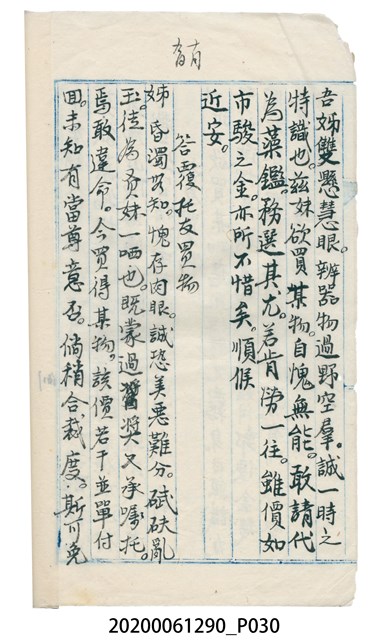 吾姊雙懸慧眼。辨器物過野空羣。誠一時之
特識也。茲妹欲買某物。自愧無能。敢請代
為藻鑑。務選其尤。若肯勞一往。雖價如
市駿之金。亦所不惜矣。順候
近安。
答覆托友買物
姊昏濁無知。愧存肉眼。誠恐美惡難分。碔砆亂
玉。徒為吾妹一哂也。既蒙過獎。又承囑托。
焉敢違命。今買得某物。該價若干並單付
回。未知有當尊意否。倘稍合裁度。斯可免
20200061290_P030